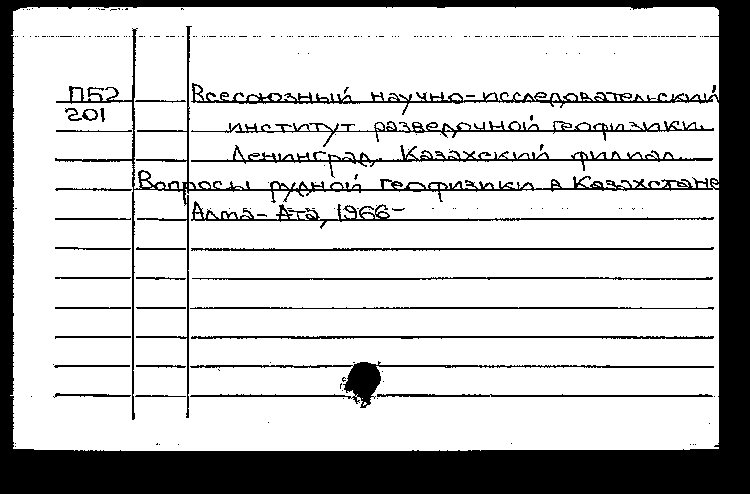 П52
201
Всесоюзный научно-исследовательский
институт разведочной геофизики.
Ленинград. Казахский филиал.
Вопросы рудной геофизики в Казахстане
Алма-Ата, 1966-